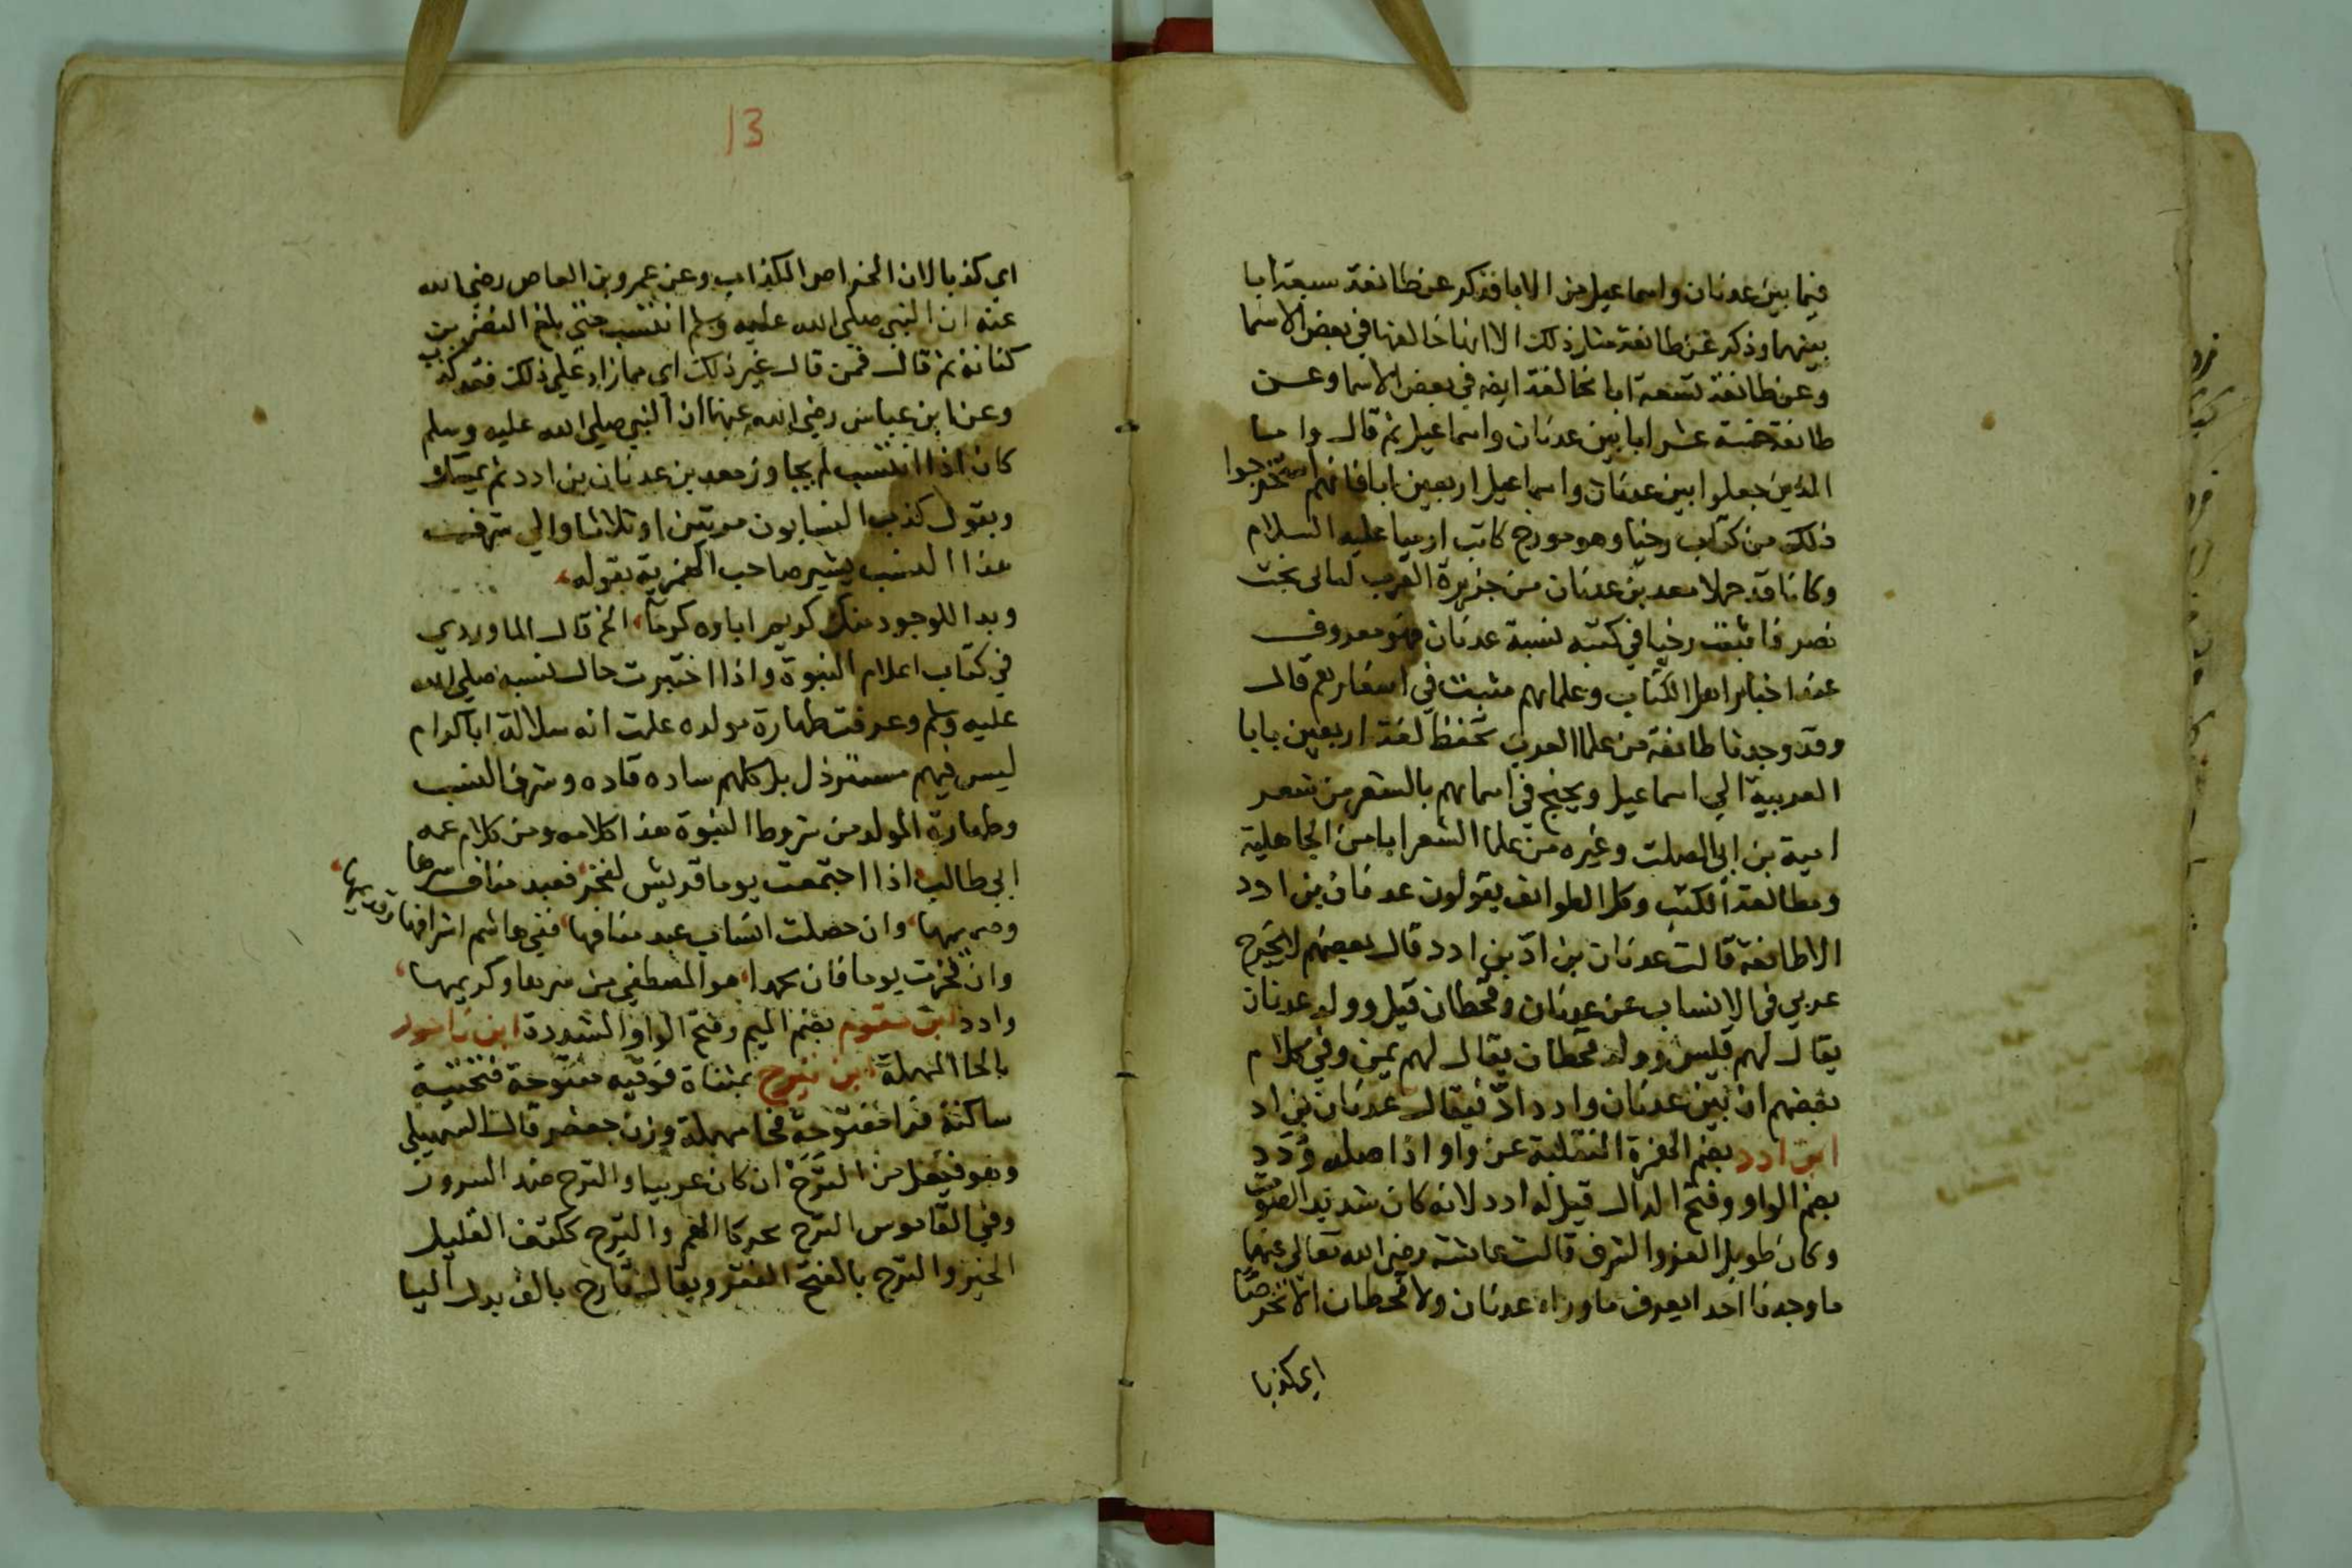 فيما بين عدنان واسماعيل من الابا فذكر عن طائفة سبعة ابا
بينهما وذكر عن طائفة مثل ذلك الا انها خالفتها في بعض الاسما
وعن طائفة تسعة ابا مخالفة ايضه في بعض الاسما وعن
طائفة خمسة عشر ابا بين عدنان واسماعيل ثم قال واما
الذين جعلوا بين عدنان واسماعيل اربعين ابا فانهم استخرجوا
ذلك من كتاب رخيا وهو مورخ كاتب ارميا عليه السلام
وكانا قد حملا معد بن عدنان من جزيرة العرب ليالى بخت
نصر فاثبت رخيا في كتبه نسبة عدنان فهو معروف
عند اخبار اهل الكتاب وعلمايهم مثبت في اسفارهم قال
وقد وجدنا طائفة من علما العرب تحفظ لمعد اربعين بابا
العربية الي اسماعيل ويحتج في اسمائهم بالشعر من شعر
امية بن ابى الصلت وغيره من علما الشعر ايا من الجاهلية
ومطالعة الكتب وكل الطوايف يقولون عدنان بن ادد
الا طائفة قالت عدنان بن ادّ بن ادد قال بعضهم لا يخرج
عربي في الانساب عن عدنان وقحطان قيل وولد عدنان
يقال لهم قيس وولد قحطان يقال لهم يمن وفي كلام
بعضهم ان بين عدنان وادد ادّ فيقال عدنان بن اد
ابن ادد بضم الهمزة المنقلبة عن واو اذ اصله وُدَد
بضم الواو وفتح الدال قيل له ادد لانه كان شديد الصوت
وكان طويل العز والشرف قالت عائشة رضي الله تعالى عنها
ما وجدنا احدا يعرف ما وراء عدنان ولا قحطان الا تخرصًا
اي كذبا
13
اي كذبا لان الخراص الكذاب وعن عمرو بن العاص رضي الله
عنه ان النبي صلى الله عليه وسلم انتسب حتى بلغ النضر بن
كنانة ثم قال فمن قال غير ذلك اي مما زاد على ذلك فقد كذب
وعن ابن عباس رضي الله عنهما ان النبي صلي الله عليه وسلم
كان اذا انتسب لم يجاوز معد بن عدنان بن ادد ثم يمسك
ويقول كذب النسابون مرتين او ثلاثا والي شرف
هذا النسب يشير صاحب الهمزية بقوله
وبدا للوجود منك كريم اباوه كرما الخ قال الماوردي
في كتاب اعلام النبوة واذا اختبرت حال نسبه صلى الله
عليه وسلم وعرفت طهارة مولده علمت انه سلالة ابا كرام
ليس فيهم مسترذل بل كلهم ساده قاده وشرف النسب
وطهارة المولد من شروط النبوة هذا كلامه ومن كلام عمه
ابي طالب اذا اجتمعت يوما قريش لفخر فعبد مناف سرها
وصميمها وان حصلت انساب عبد منافها ففي هاشم اشرافها وقديمها
وان فخرت يوما فان محمدا هو المصطفي من سرها وكريمها
وادد ابن مقوم بضم الميم وفتح الواو المشددة ابن ناحور
بالحا المهملة ابن تيرح بمثناة فوقيه مفتوحة فتحتية
ساكنة فرا مفتوحة فحا مهملة وزن جعفر قال السهيلي
وهو فيعل من التَرَحَة ان كان عربيا والترح ضد السرور
وفي القاموس الترح محركا الهم والترح ككتف القليل
الخير والترح بالفتح الفقر ويقال تارح بالف بدل اليا